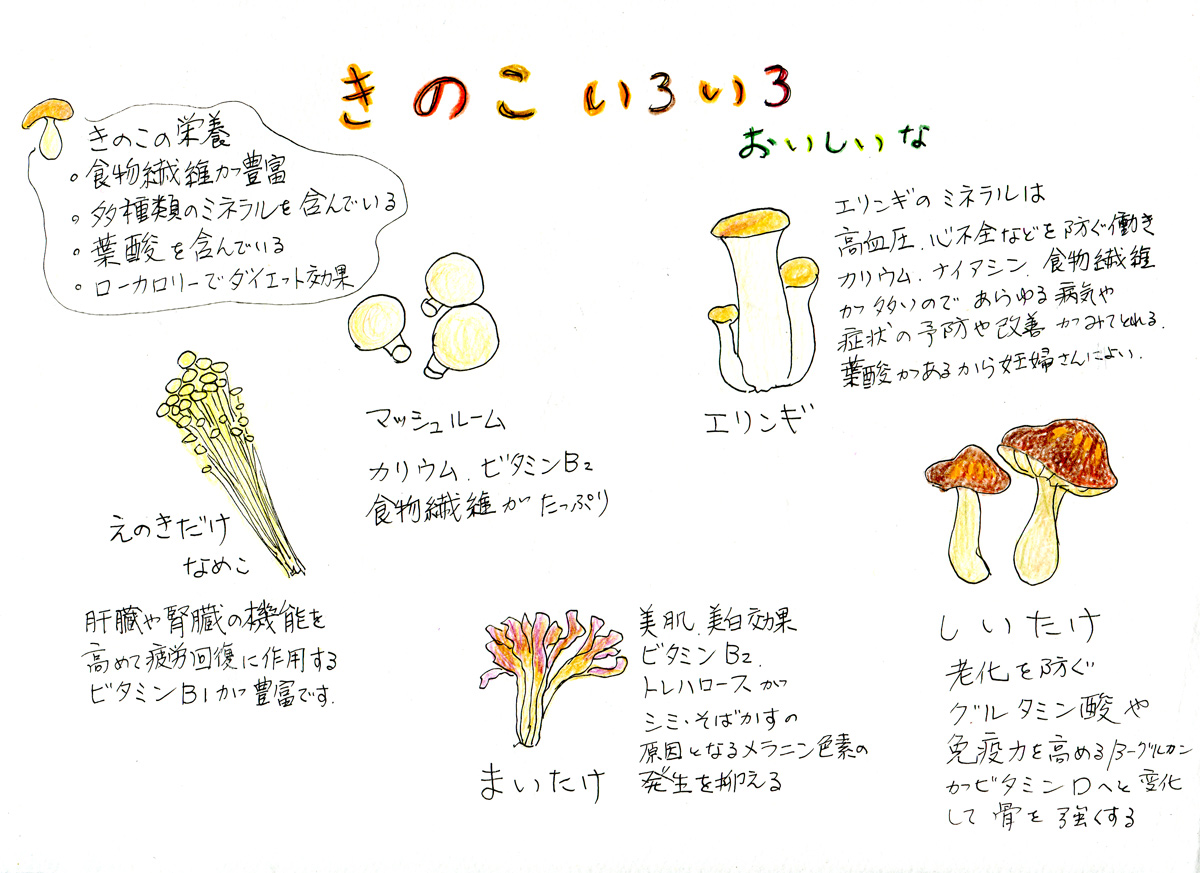 きのこ いろいろ
おいしいな
きのこの栄養
・食物繊維が豊富
・多種類のミネラルを含んでいる
・葉酸を含んでいる
・ローカロリーでダイエット効果
エリンギのミネラルは
高血圧、心不全などを防ぐ働き
カリウム、ナイアシン、食物繊維
が多いので あらゆる病気や
症状の予防や改善がみてとれる.
葉酸があるから妊婦さんによい.
エリンギ
マッシュルーム
カリウム、ビタミンB2
食物繊維がたっぷり
えのきだけ
なめこ
肝臓や腎臓の機能を
高めて疲労回復に作用する
ビタミンB1が豊富です.
まいたけ
美肌、美白効果
ビタミンB2、
トレハロースが
シミ・そばかすの
原因となるメラニン色素の
発生を抑える
しいたけ
老化を防ぐ
グルタミン酸や
免疫力を高めるβ-グルカン
がビタミンDへと変化
して骨を強くする